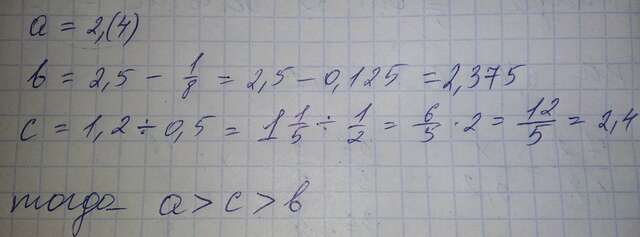 a = 2,(4)
b = 2,5 − 1/8 = 2,5 − 0,125 = 2,375
c = 1,2 ÷ 0,5 = 1 1/5 ÷ 1/2 = 6/5 · 2 = 12/5 = 2,4
тогда a > c > b